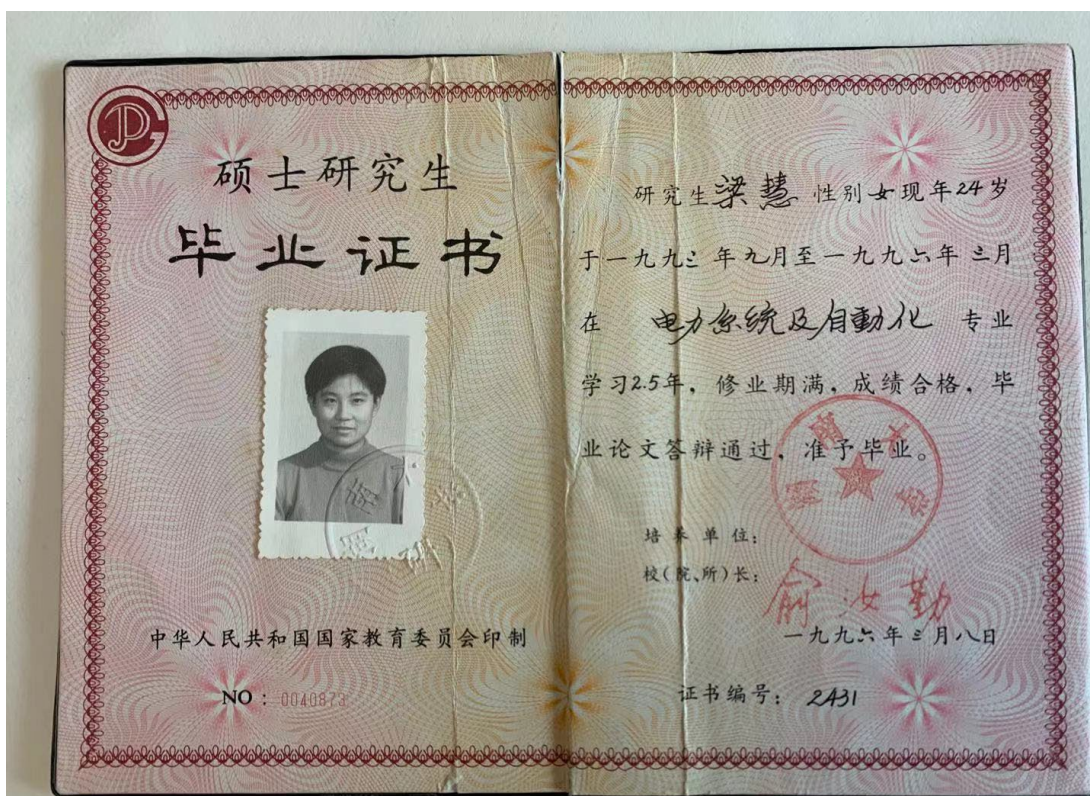 硕士研究生
毕业证书
中华人民共和国国家教育委员会印制
NO：0040873
研究生梁慧 性别女现年24岁
于一九九三年九月至一九九六年三月
在 电力系统及自動化 专业
学习2.5年，修业期满，成绩合格，毕
业论文答辩通过，准予毕业。
湖南大学
培养单位：
校（院、所）长：
俞汝勤
一九九六年三月八日
证书编号：2431